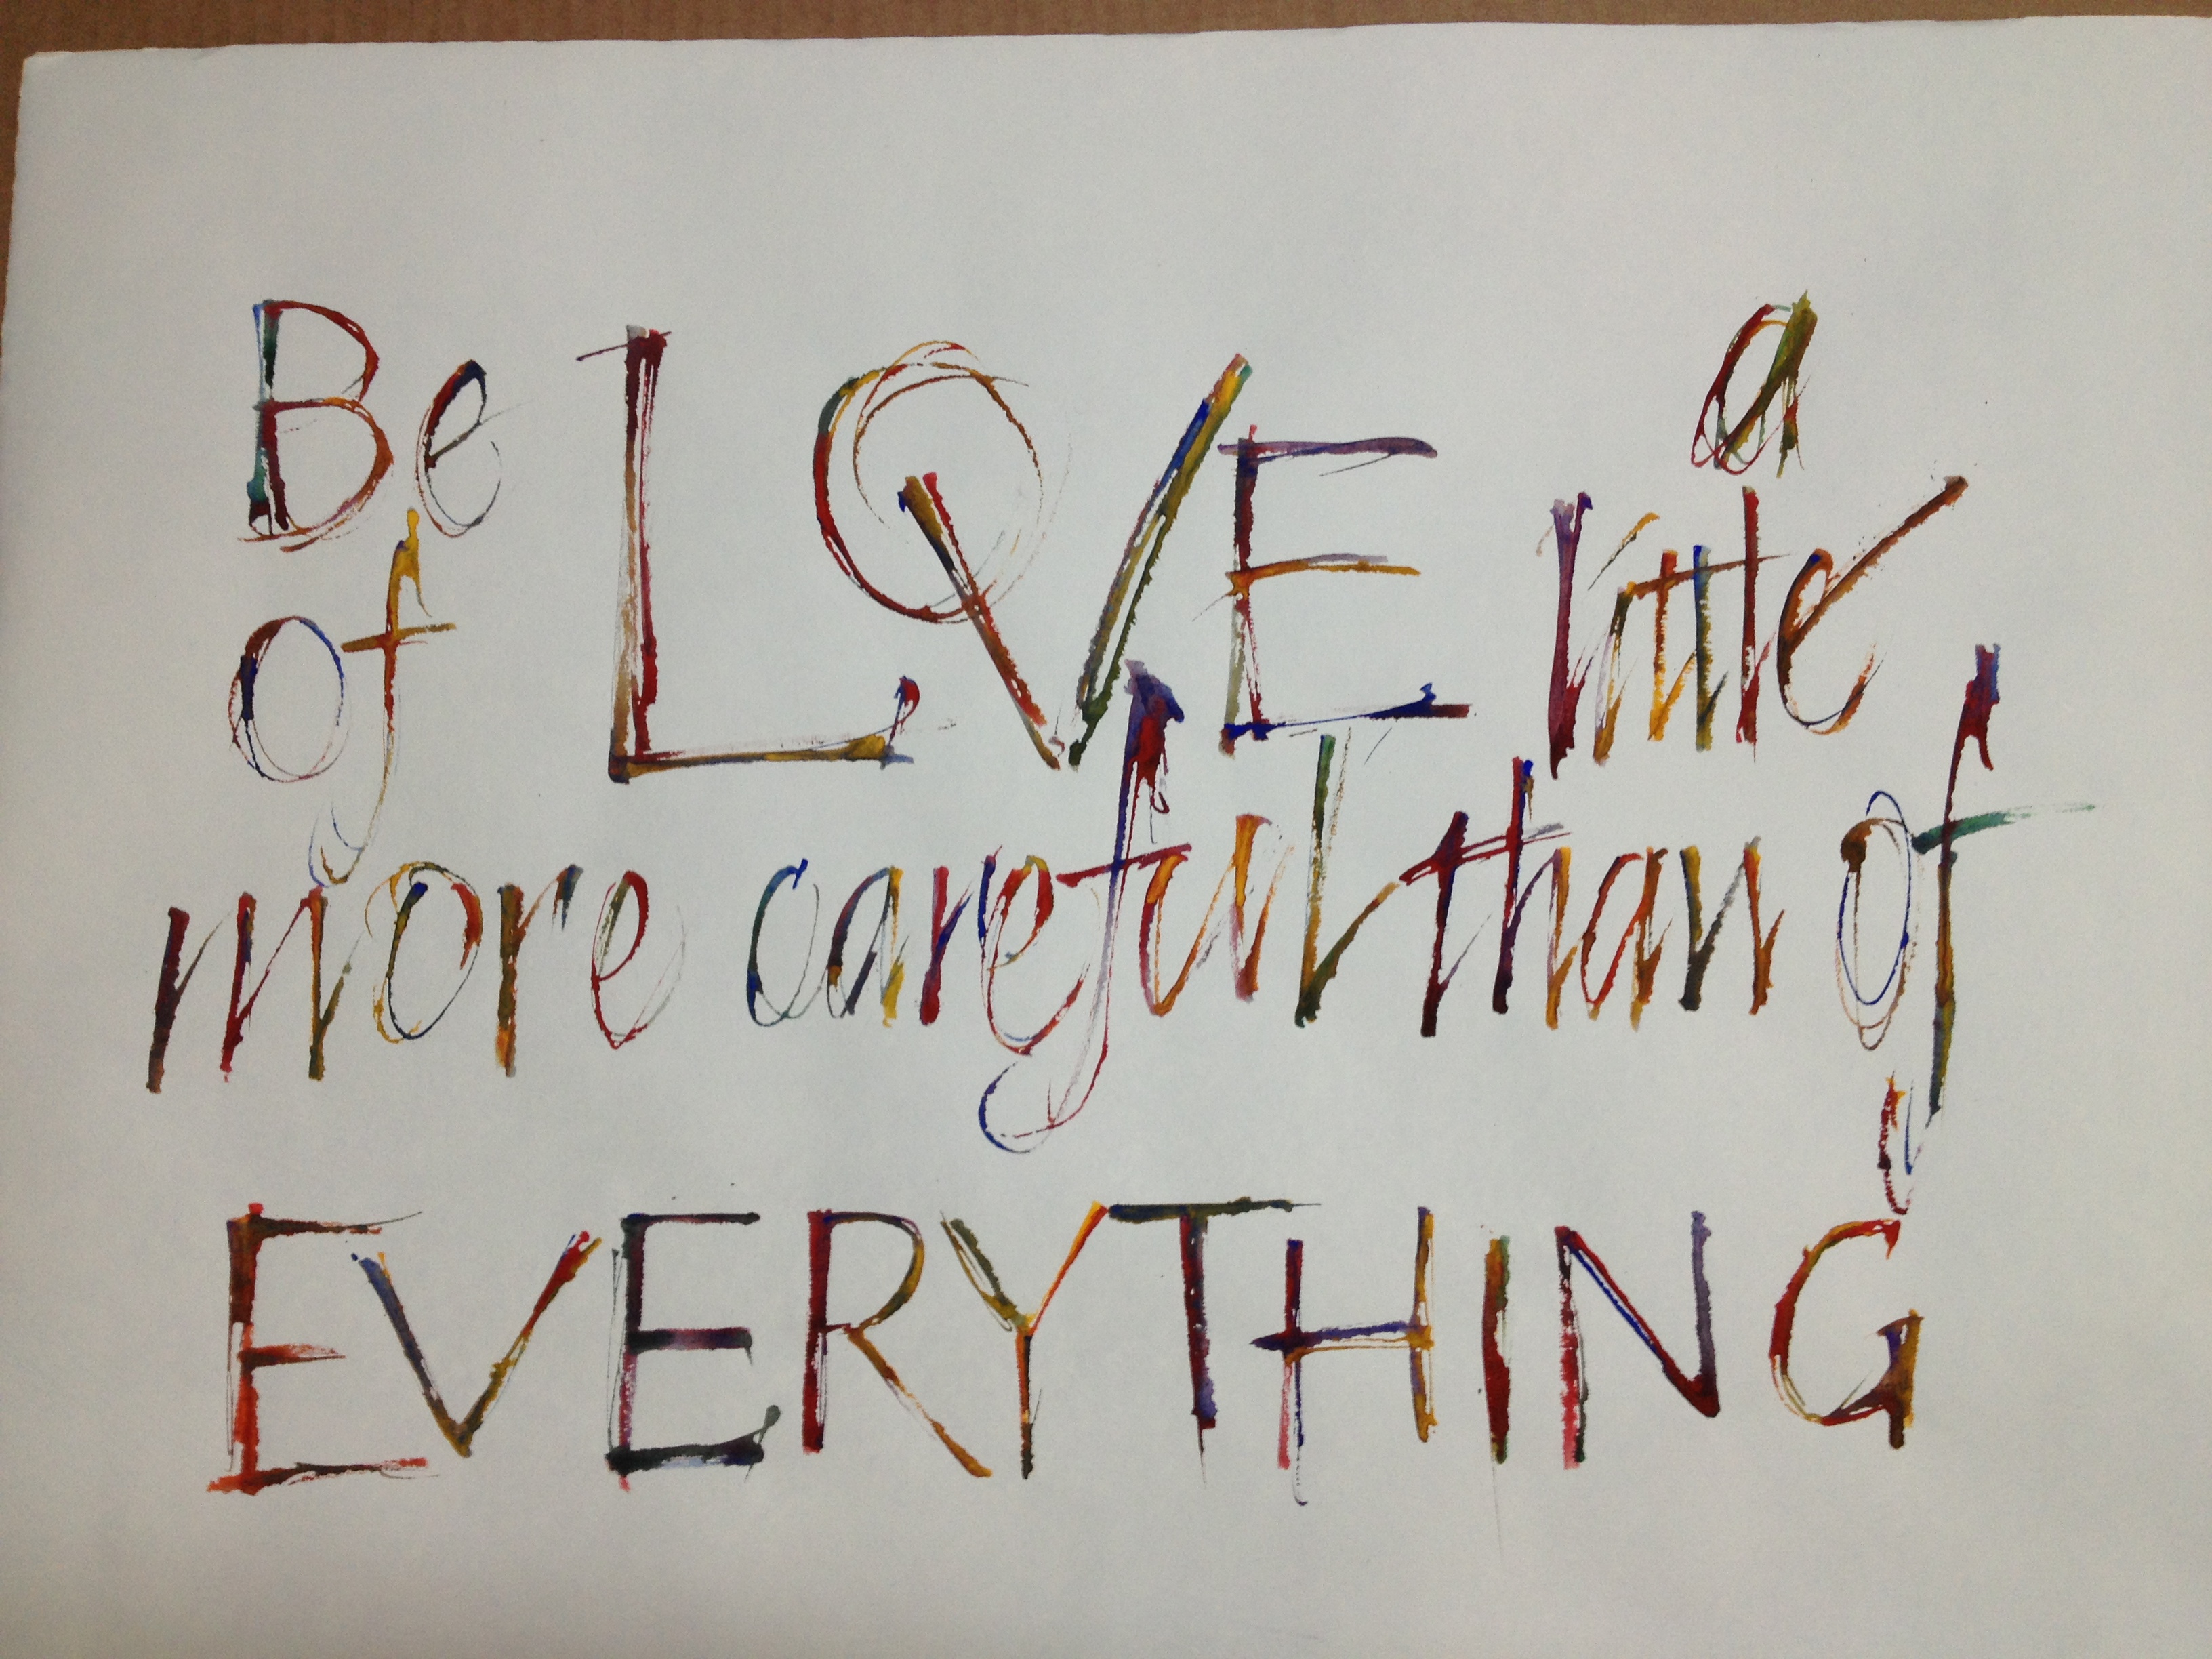 Be of LOVE a little
more careful than of
EVERYTHING